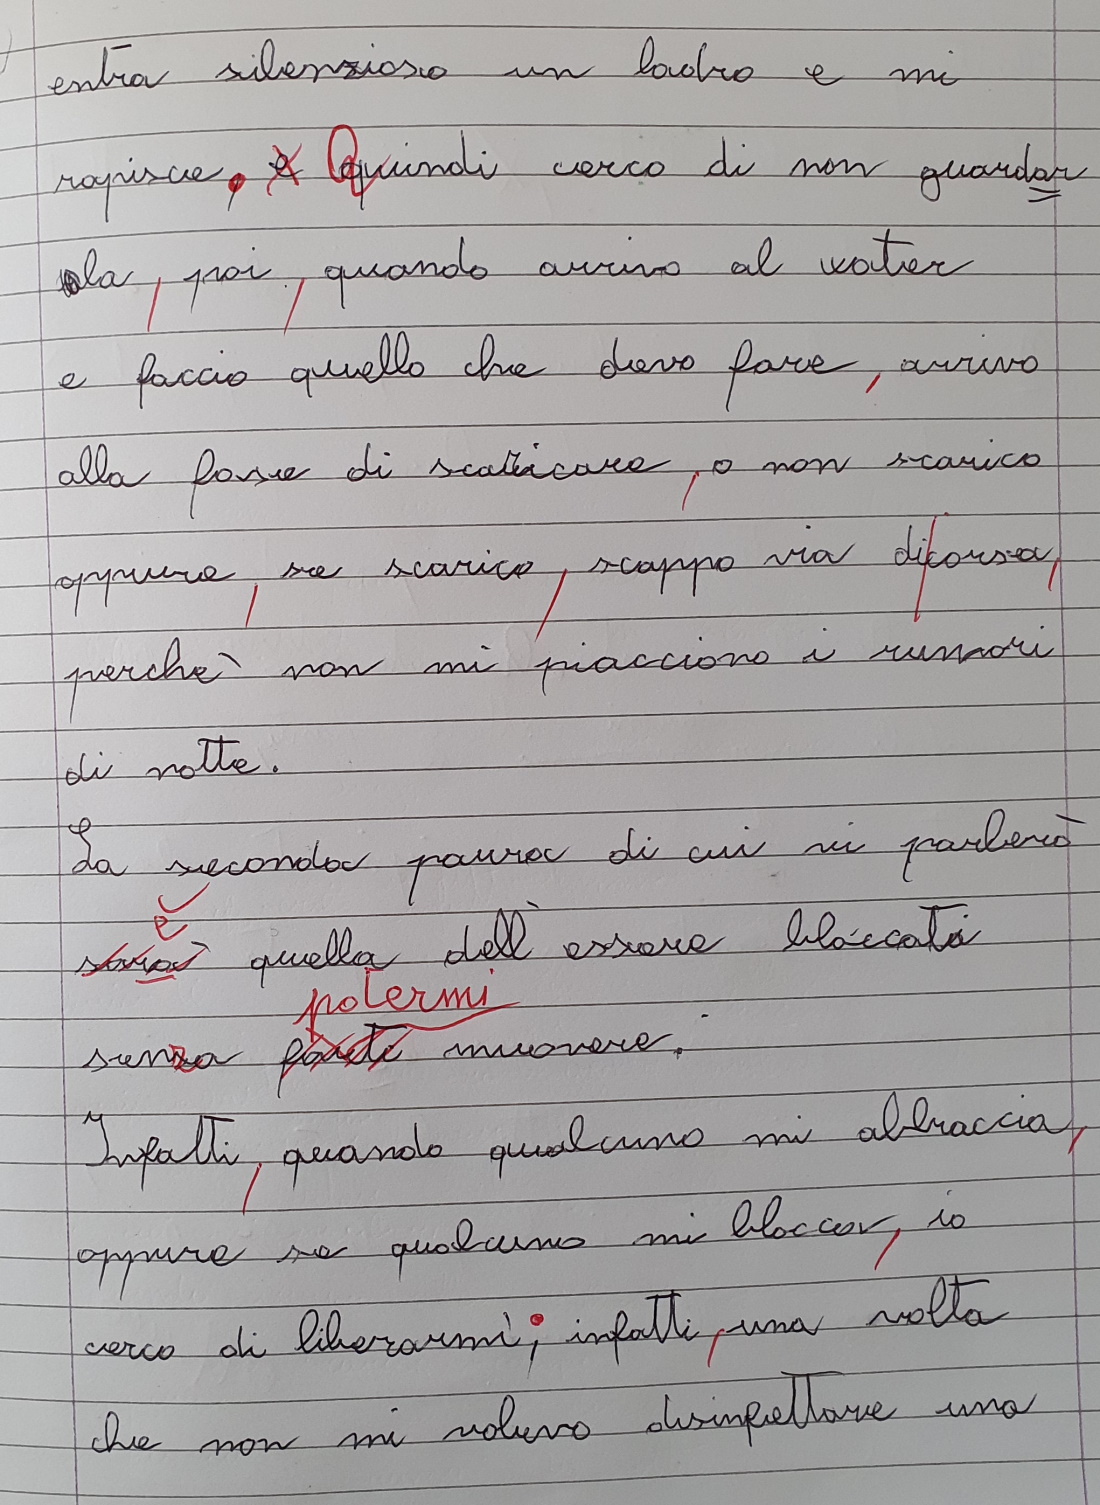 entra silenzioso un ladro e mi
rapisce. e Quindi cerco di non guardar
la, poi, quando arrivo al water
e faccio quello che devo fare, arrivo
alla fase di scaricare, o non scarico
oppure, se scarico, scappo via di corsa,
perche` non mi piacciono i rumori
di notte.
La seconda paura di cui vi parlerò
è
sarà quella dell'essere bloccata
potermi
senza muovere.
Infatti, quando qualcuno mi abbraccia,
oppure se qualcuno mi blocca, io
cerco di liberarmi; infatti, una volta
che non mi volevo disinfettare una